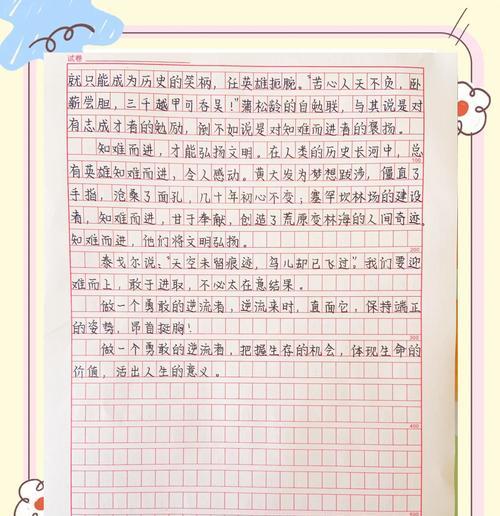 试卷
就只能成为历史的笑柄，任英雄扼腕。“苦心人天不负，卧
薪尝胆，三千越甲可吞吴！”蒲松龄的自勉联，与其说是对
有志成才者的勉励，倒不如说是对知难而进者的褒扬。
知难而进，才能弘扬文明。在人类的历史长河中，总
100
有英雄知难而进，令人感动。黄大发为梦想跋涉，僵直了
手指，沧桑了面孔，几十年初心不变；塞罕坎林场的建设
者，知难而进，甘于奉献，创造了荒原变林海的人间奇迹
知难而进，他们将文明弘扬。
200
泰戈尔说：“天空未留痕迹，鸟儿却已飞过。”我们要迎
难而上，敢于进取，不必太在意结果。
做一个勇敢的逆流者，逆流来时，直面它，保持端正
的姿势，昂首挺胸！
300
做一个勇敢的逆流者，把握生存的机会，体现生命的
价值，活出人生的意义。
400